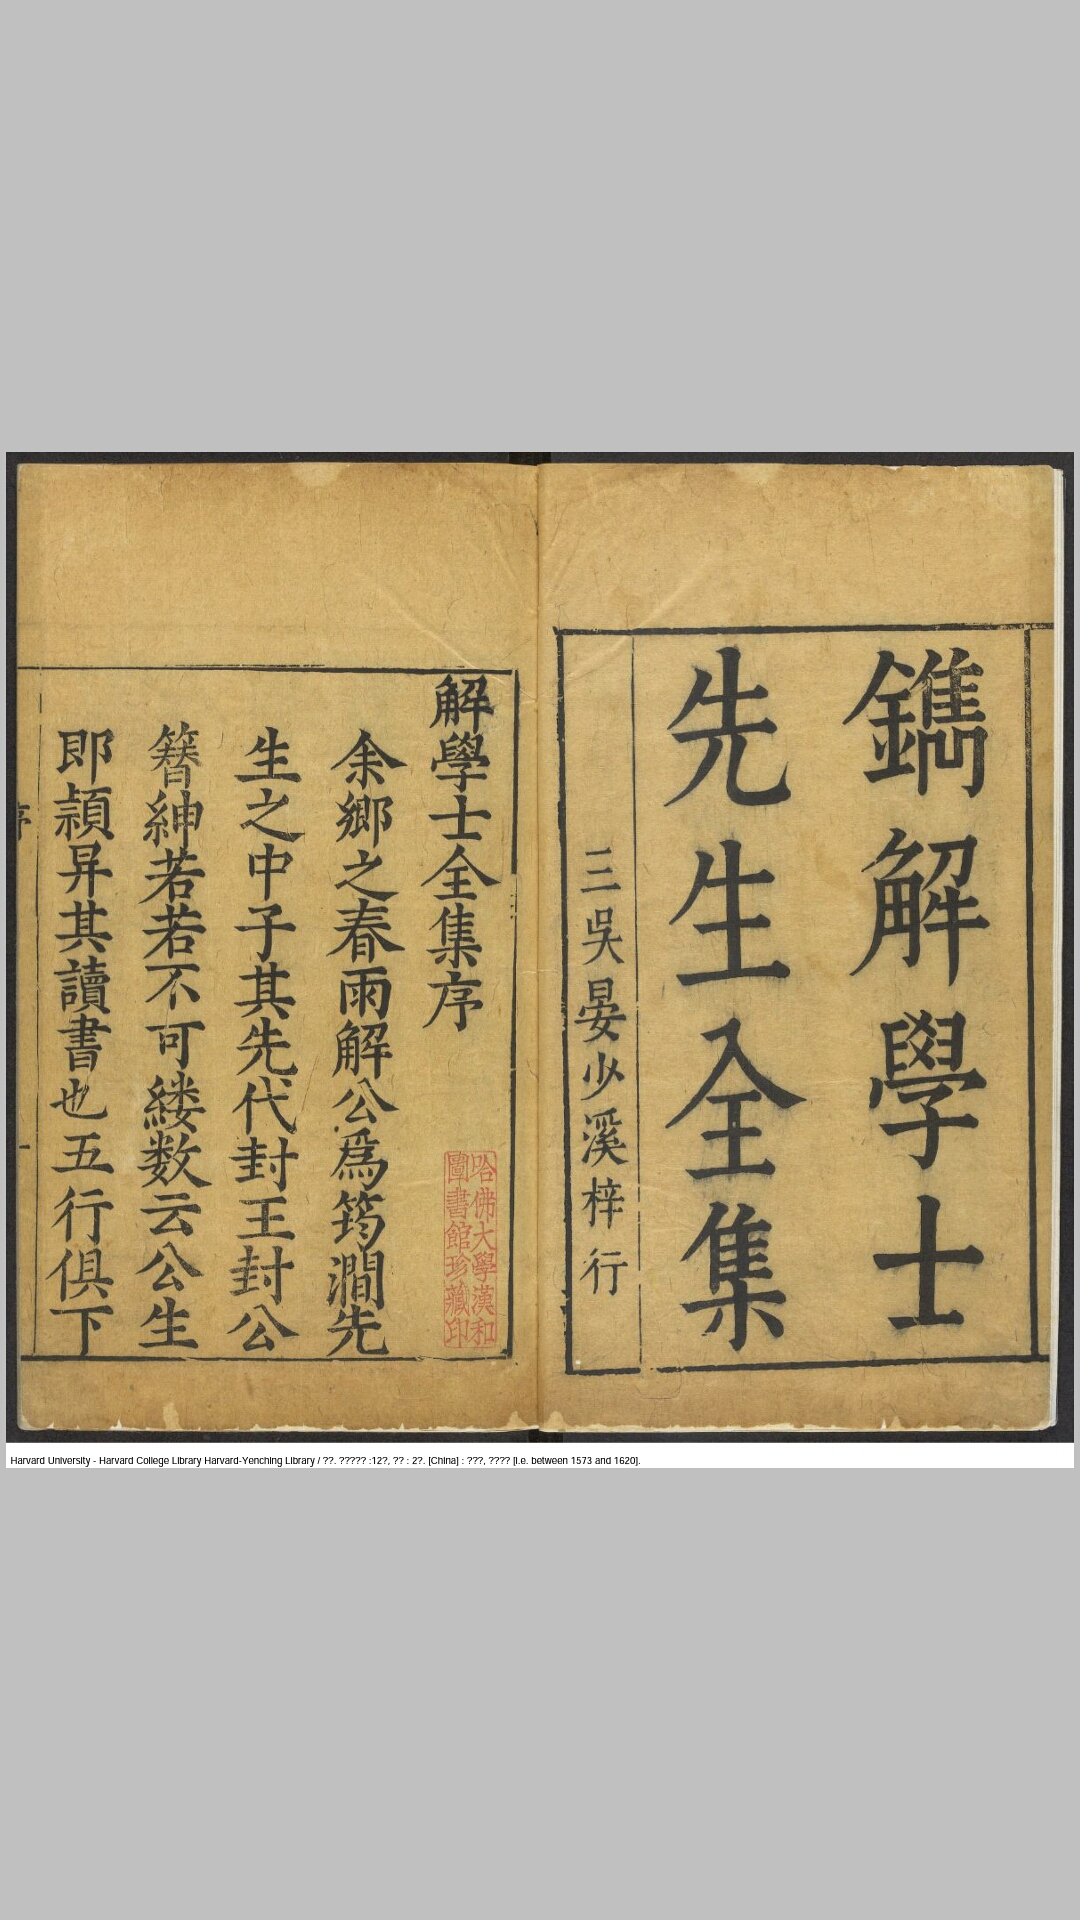 鐫解學士
先生全集
三吳晏少溪梓行
解學士全集序
余鄉之春雨解公爲筠澗先
生之中子其先代封王封公
簪紳若若不可縷数云公生
即頴昇其讀書也五行俱下
哈佛大學漢和
圖書館珍藏印
序
一
Harvard University - Harvard College Library Harvard-Yenching Library / ??. ????? :12?, ?? : 2?. [China] : ???, ???? [i.e. between 1573 and 1620].